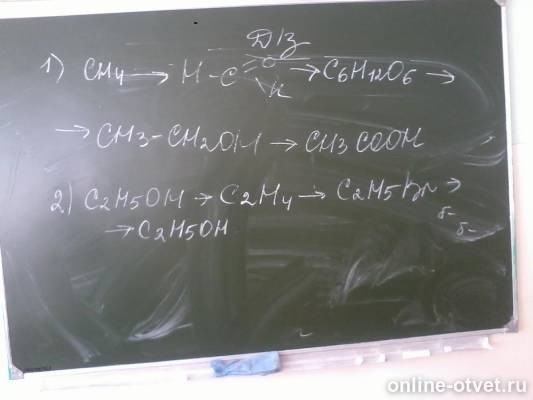 Д/З
1) CH4 → H - C = O H → C6H12O6 →
→ CH3-CH2OH → CH3COOH
2) C2H5OH → C2H4 → C2H5Br →
→ C2H5OH
б-
б-
online-otvet.ru